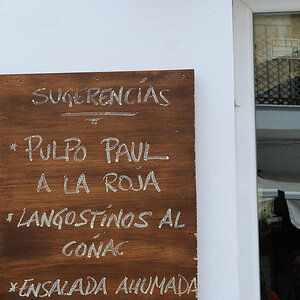 SUGERENCÍAS
* PULPO PAUL
A LA ROJA
* LANGOSTINOS AL
COÑAC
* ENSALADA AHUMADA